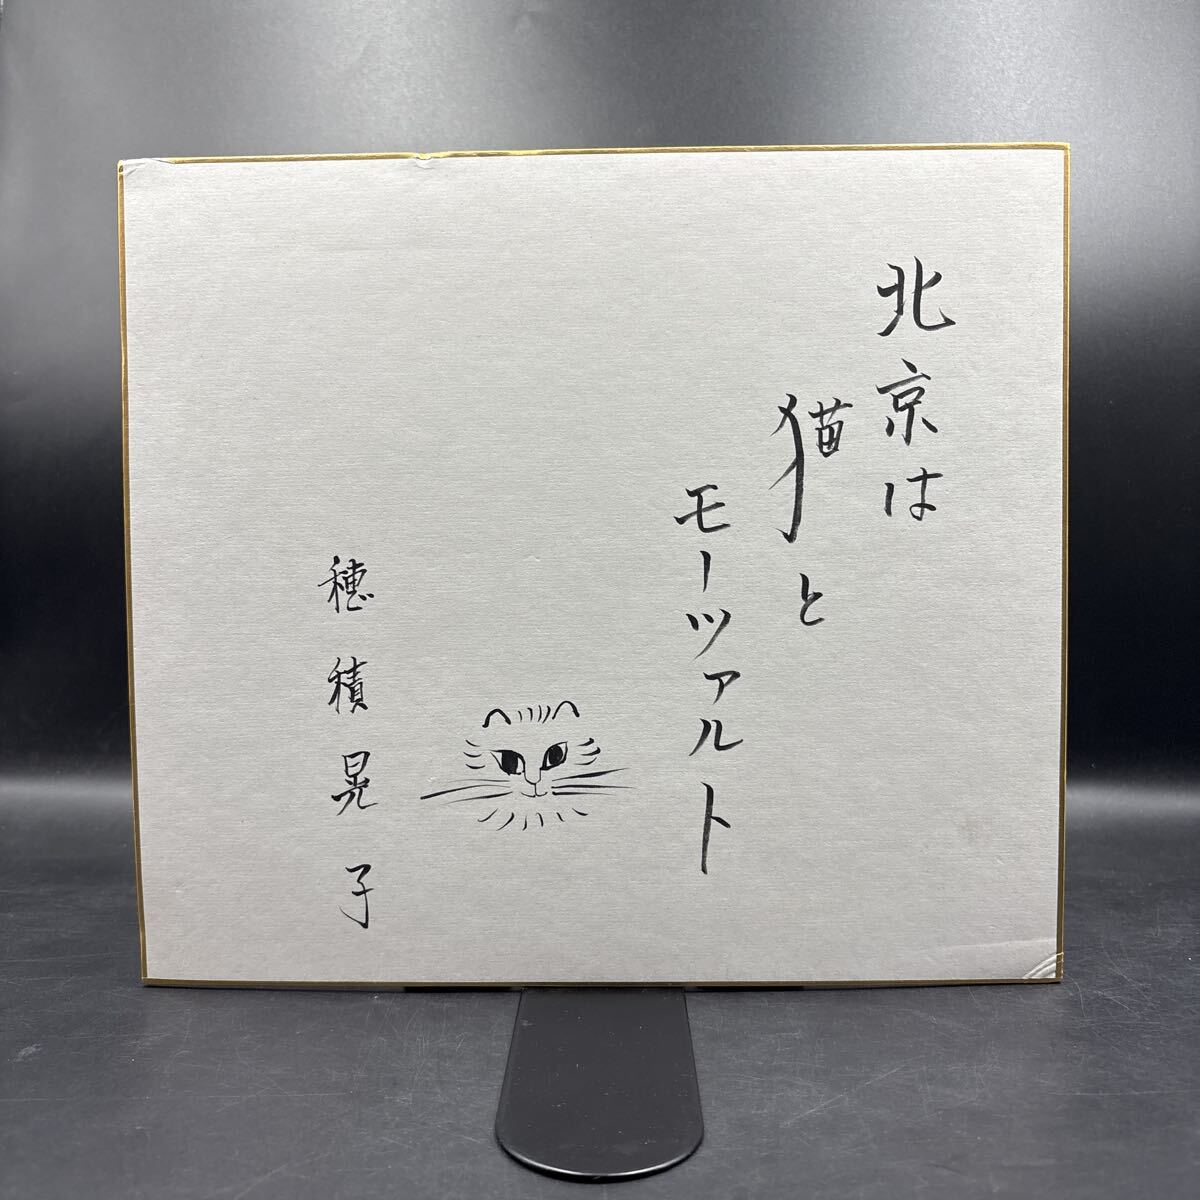 北京は
猫と
モーツァルト
穂積晃子